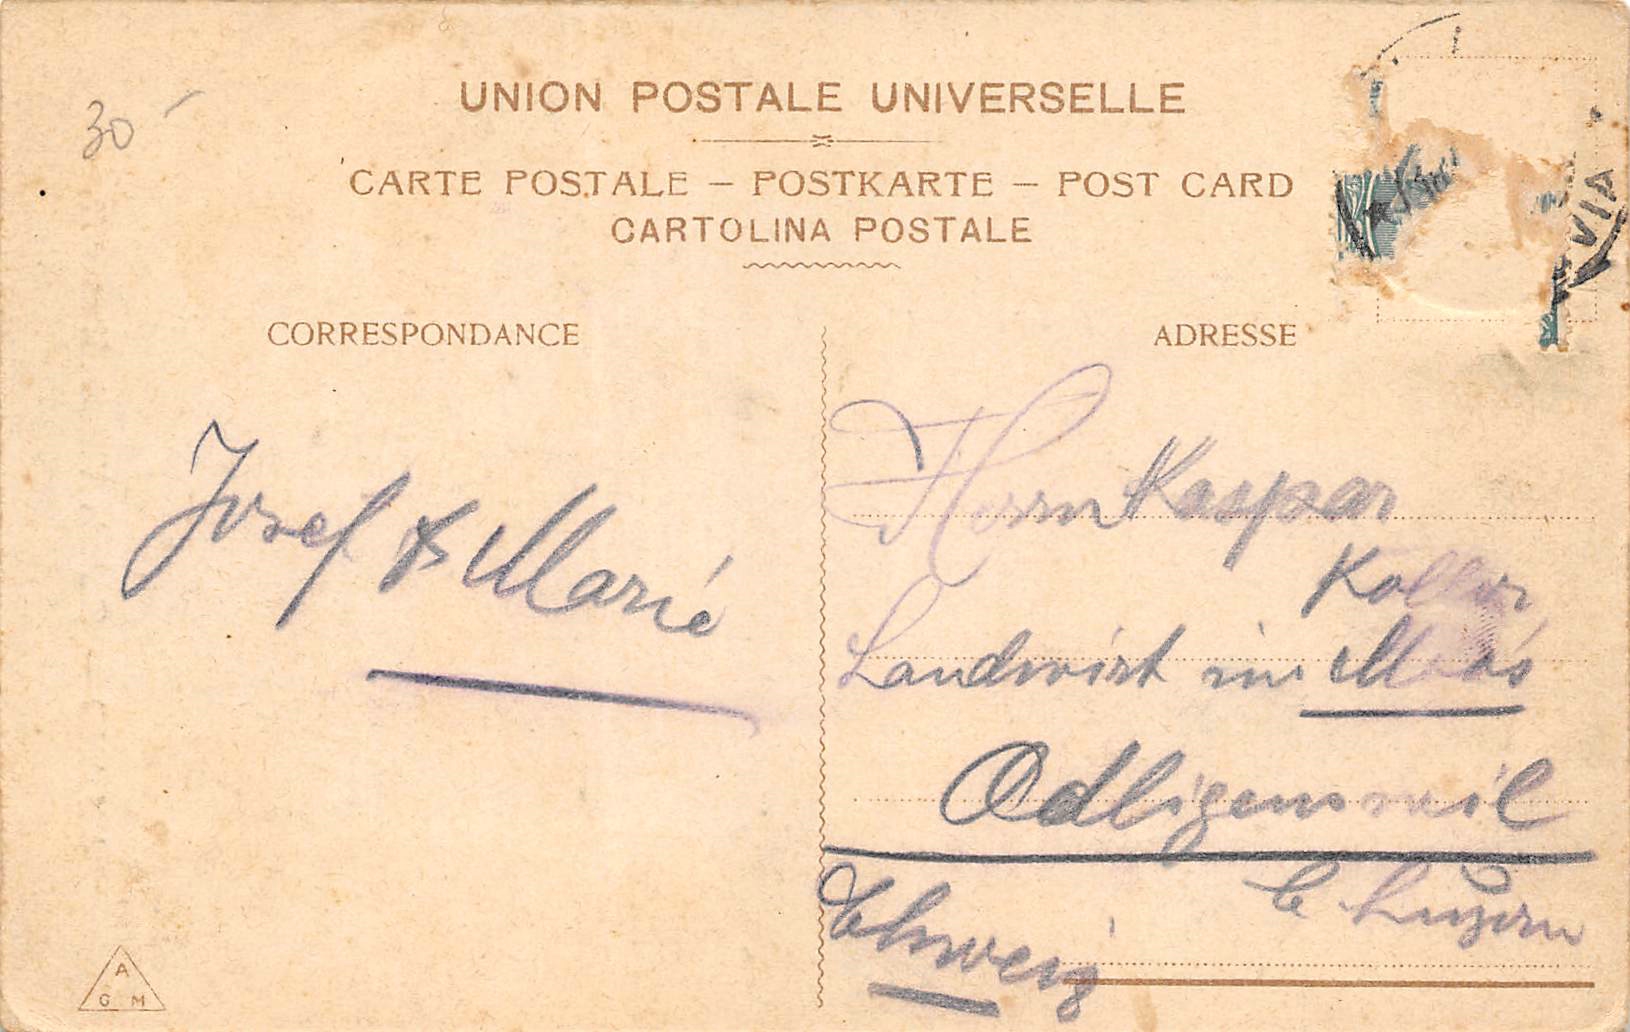 30 -
UNION POSTALE UNIVERSELLE
CARTE POSTALE – POSTKARTE – POST CARD
CARTOLINA POSTALE
VIA
CORRESPONDANCE
ADRESSE
Josef & Marie
Herrn Kaspar
Koller
Landwirt im Moos
Odligenswil
Ct. Luzern
Schweiz
A
G M